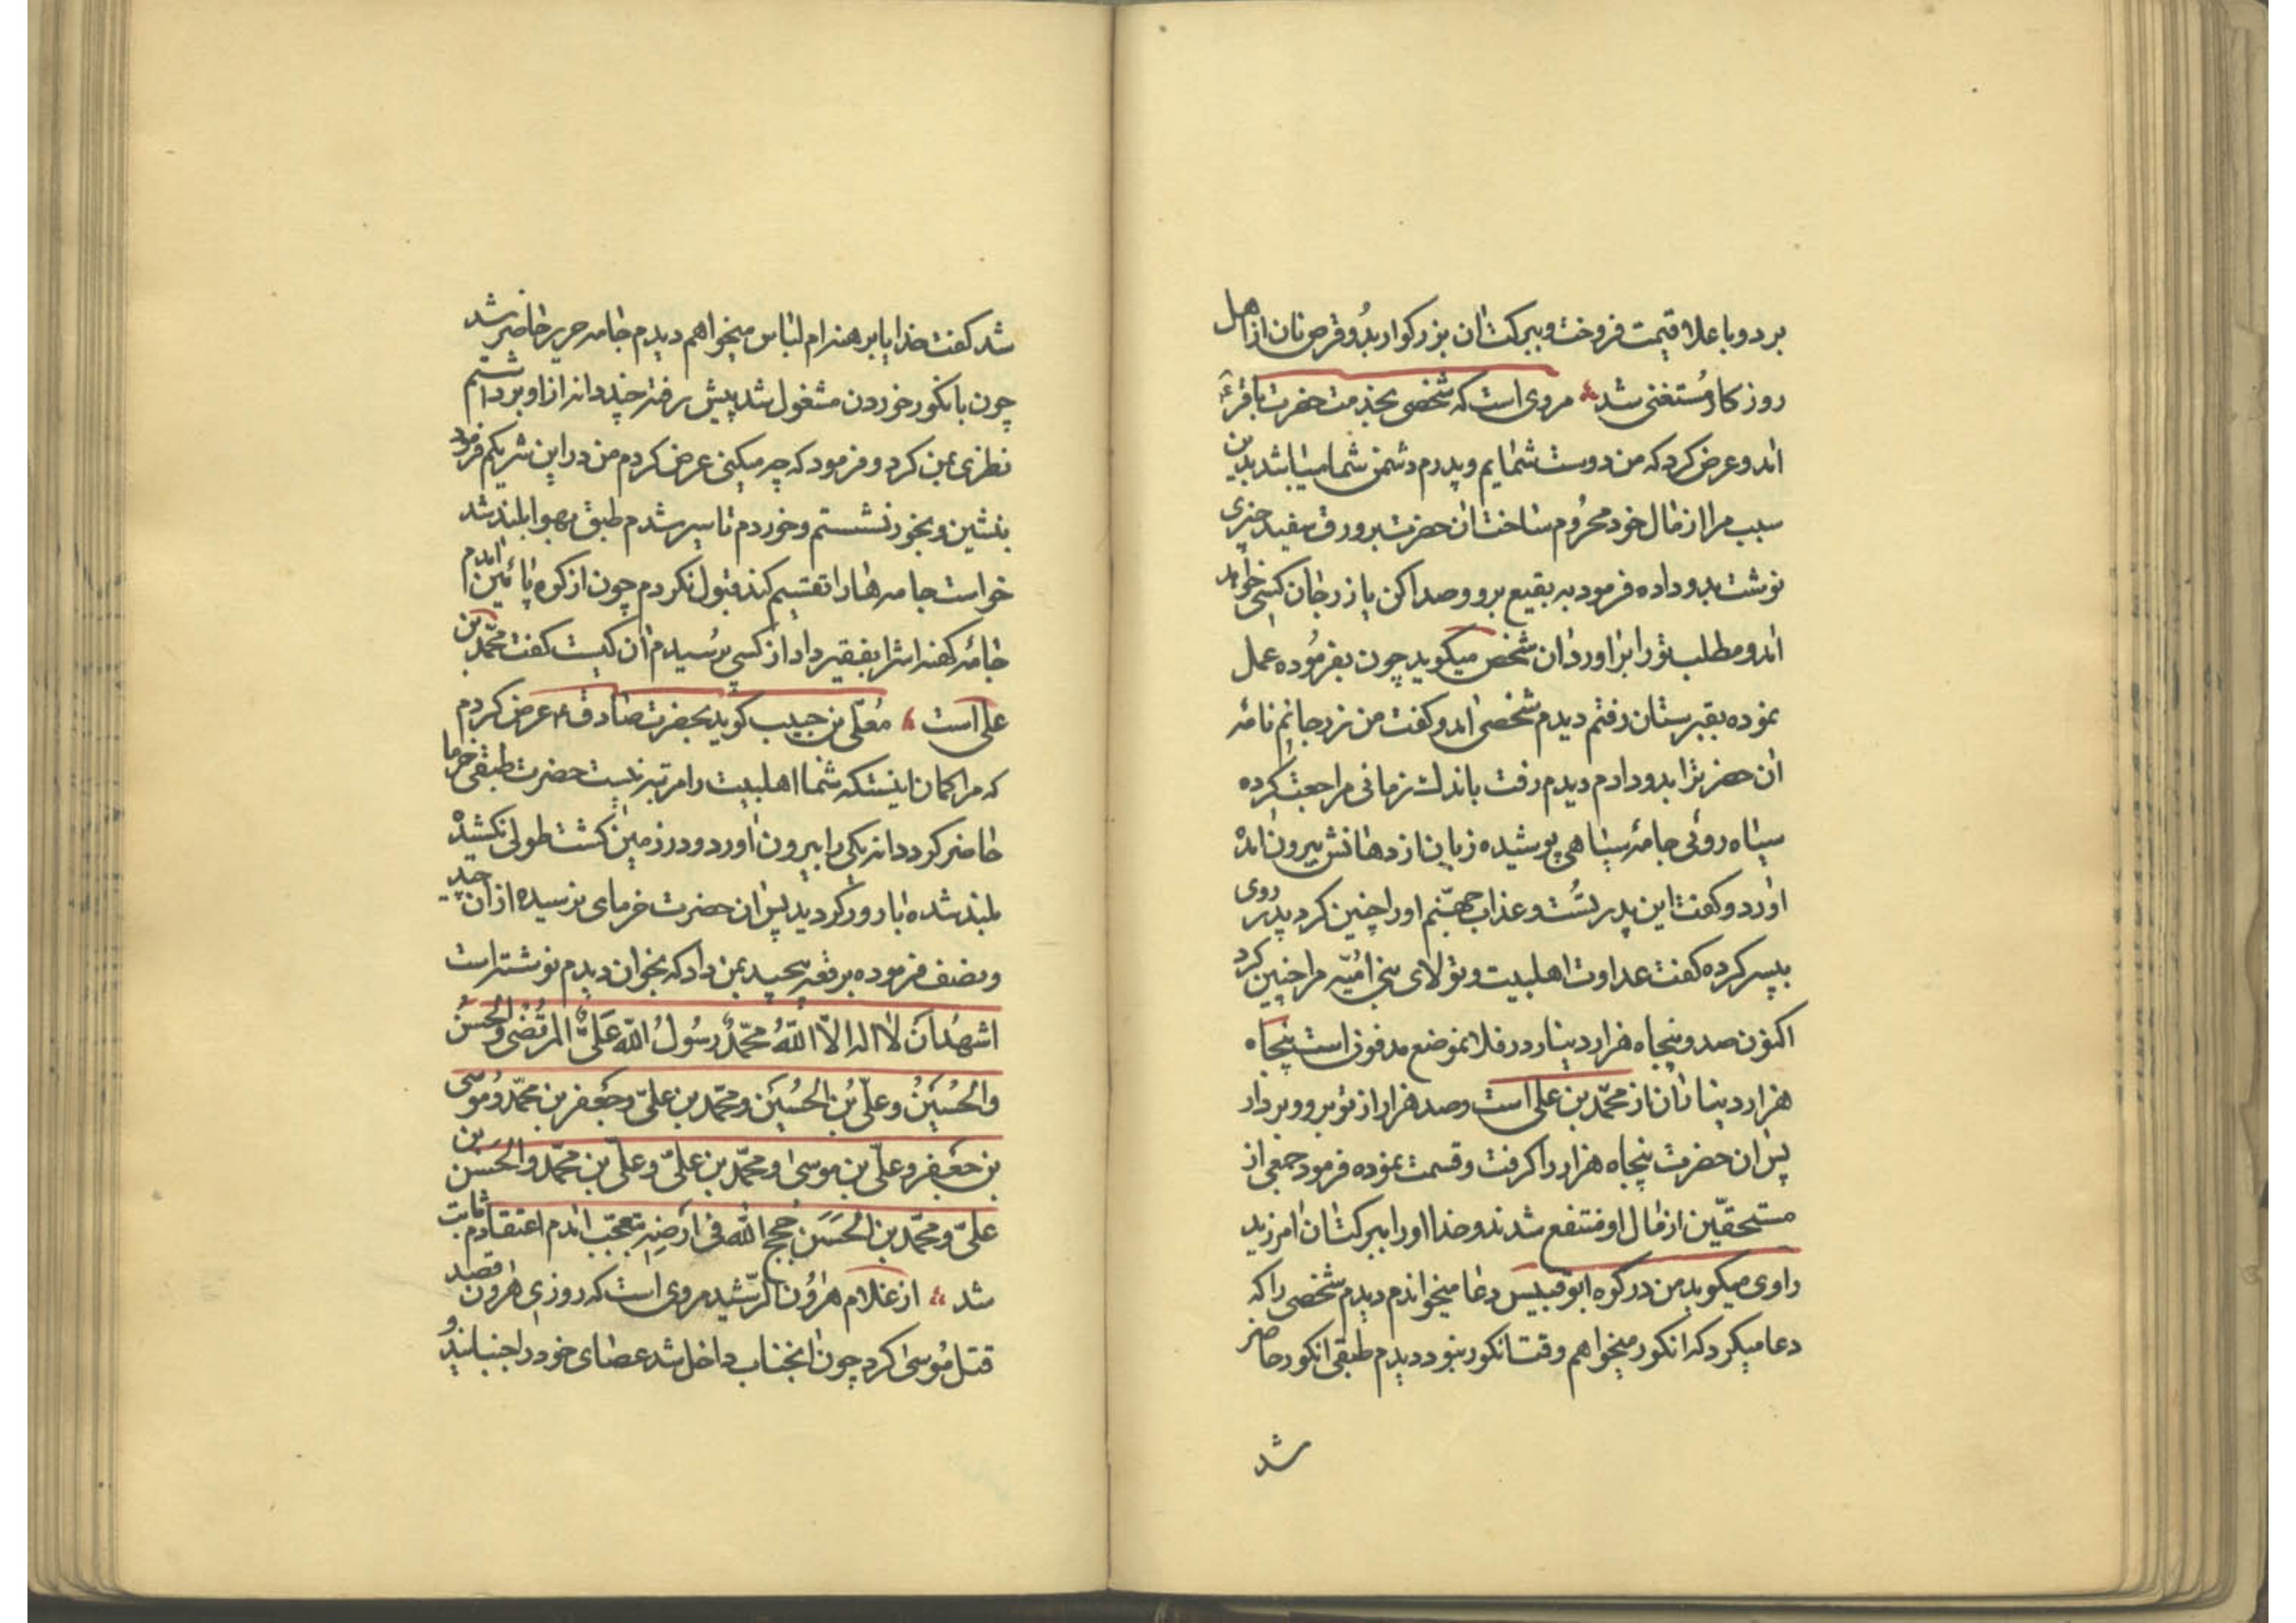 برد و باعلا قیمت فروخت و ببرکت ان بزرکوار بدو قرص نان از اهل
روزکار مستغنی شد مروی است که شخصی بخدمت حضرت باقر ع
امد و عرض کرد که من دوست شمایم و پدرم دشمن شما میباشد بدین
سبب مرا از مال خود محروم ساخت ان حضرت بر ورق سفید چیزی
نوشت بدو داده فرمود به بقیع برو و صدا کن یا زرجان کسی خواهد
امد و مطلب تو را بر اورد ان شخص میکوید چون بفرموده عمل
نموده بقبرستان رفتم دیدم شخصی امد و کفت من زرجانم نامۀ
ان حضرترا بدو دادم دیدم رفت باندک زمانی مراجعت کرده
سیاه روئی جامۀ سیاهی پوشیده زبان از دهانش بیرون امده
اورد و کفت این پدر تست و عذاب جهنّم او را چنین کرد پدر روی
بپسر کرده کفت عداوت اهلبیت و تولای بنی امیّه مرا چنین کرد
اکنون صد و پنجاه هزار دینار در فلانموضع مدفون است پنجاه
هزار دینار ان از محمّد بن علی است و صد هزار از تو برو و بردار
پس ان حضرت پنجاه هزار را کرفت و قسمت نموده فرمود جمعی از
مستحقّین از مال او منتفع شدند و خدا او را ببرکتشان امرزید
راوی میکوید من در کوه ابو قبیس دعا میخواندم دیدم شخصی را که
دعا میکرد که انکور میخواهم وقت انکور نبود دیدم طبقی انکور حاضر
شد
شد کفت خدایا برهنه‌ام لباس میخواهم دیدم جامه حریر حاضر شد
چون بانکور خوردن مشغول شد پیش رفته چند دانه از او برداشتم
نظری بمن کرد و فرمود که چه میکنی عرض کردم من در این شریکم فرمود
بنشین و بخور نشستم و خوردم تا سیر شدم طبق بهوا بلند شد
خواست جامه‌ها را تقسیم کند قبول نکردم چون از کوه پائین امدم
جامۀ کهنه اشرا بفقیر داد از کسی پرسیدم ان کیست کفت محمّد بن
علی است معلّی بن حبیب کوید بحضرت صادق ع عرض کردم
که مرا کمان اینستکه شما اهلبیت را مرتبه نیست حضرت طبقی خرما
حاضر کرد دانه یکی را بیرون اورد و در زمین کشت طولی نکشیده
بلند شده بارور کردید پس ان حضرت خرمای نرسیده از ان چید
و نصف فرموده برقعه پیچید بمن داد که بخوان دیدم نوشته است
اشهد ان لا اله الّا اللّه محمّد رسول اللّه علیّ المرتضی والحسن
والحسین وعلیّ بن الحسین ومحمّد بن علیّ وجعفر بن محمّد وموسی
بن جعفر وعلیّ بن موسی ومحمّد بن علیّ وعلیّ بن محمّد والحسن بن
علیّ ومحمّد بن الحسن حجج اللّه فی ارضه تعجّب امدم اعتقادم ثابت
شد از غلام هرون الرّشید مروی است که روزی هرون قصد
قتل موسی کرد چون انجناب داخل شد عصای خود را جنبانید و